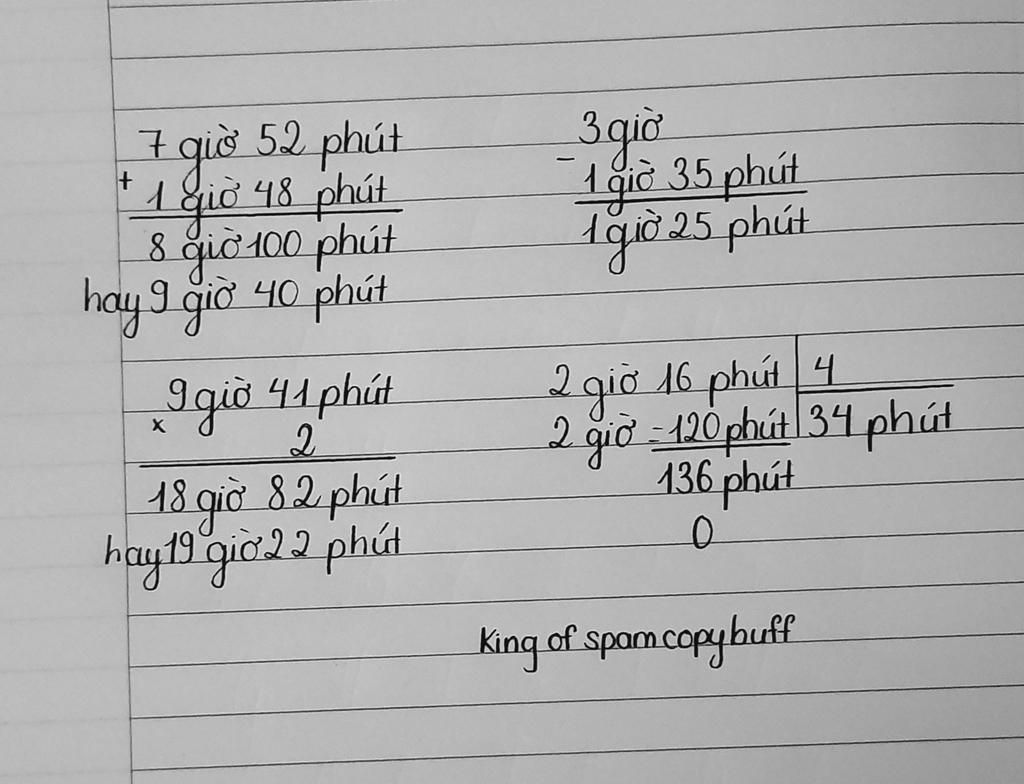 7 giờ 52 phút
+
1 giờ 48 phút
8 giờ 100 phút
hay 9 giờ 40 phút
3 giờ
-
1 giờ 35 phút
1 giờ 25 phút
9 giờ 41 phút
x
2
18 giờ 82 phút
hay 19 giờ 22 phút
2 giờ 16 phút | 4
2 giờ = 120 phút | 34 phút
136 phút
0
King of spamcopybuff